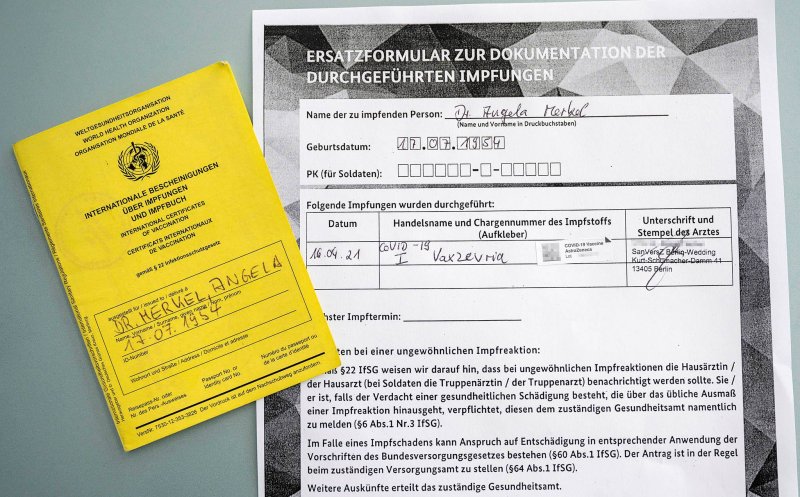 WELTGESUNDHEITSORGANISATION
WORLD HEALTH ORGANIZATION
ORGANISATION MONDIALE DE LA SANTÉ
INTERNATIONALE BESCHEINIGUNGEN
ÜBER IMPFUNGEN
UND IMPFBUCH
INTERNATIONAL CERTIFICATES
OF VACCINATION
CERTIFICATS INTERNATIONAUX
DE VACCINATION
gemäß § 22 Infektionsschutzgesetz
ausgestellt für / issued to / délivré à
DR. MERKEL, ANGELA
Name, Vorname / Surname, given name / Nom, prénom
17.07.1954
ID-Number
Wohnort und Straße / Address / Domicile et adresse
Reisepass-Nr. oder
Nr. des Pers.-Ausweises
Passport No. or
identity card No.
Numéro du passeport ou
de la carte d'identité
Der Vordruck ist auf dem Nachschubweg anzufordern.
ERSATZFORMULAR ZUR DOKUMENTATION DER
DURCHGEFÜHRTEN IMPFUNGEN
Name der zu impfenden Person: Dr. Angela Merkel
(Name und Vorname in Druckbuchstaben)
Geburtsdatum: 17.07.1954
PK (für Soldaten):
Folgende Impfungen wurden durchgeführt:
Datum
Handelsname und Chargennummer des Impfstoffs
(Aufkleber)
Unterschrift und
Stempel des Arztes
16.04.21
COVID-19
I Vaxzevria
COVID-19 Vaccine
AstraZeneca
SanVersZ Berlin-Wedding
Kurt-Schumacher-Damm 41
13405 Berlin
hster Impftermin:
ten bei einer ungewöhnlichen Impfreaktion:
ß §22 IfSG weisen wir darauf hin, dass bei ungewöhnlichen Impfreaktionen die Hausärztin /
der Hausarzt (bei Soldaten die Truppenärztin / der Truppenarzt) benachrichtigt werden sollte. Sie /
er ist, falls der Verdacht einer gesundheitlichen Schädigung besteht, die über das übliche Ausmaß
einer Impfreaktion hinausgeht, verpflichtet, diesen dem zuständigen Gesundheitsamt namentlich
zu melden (§6 Abs.1 Nr.3 IfSG).
Im Falle eines Impfschadens kann Anspruch auf Entschädigung in entsprechender Anwendung der
Vorschriften des Bundesversorgungsgesetzes bestehen (§60 Abs.1 IfSG). Der Antrag ist in der Regel
beim zuständigen Versorgungsamt zu stellen (§64 Abs.1 IfSG).
Weitere Auskünfte erteilt das zuständige Gesundheitsamt.